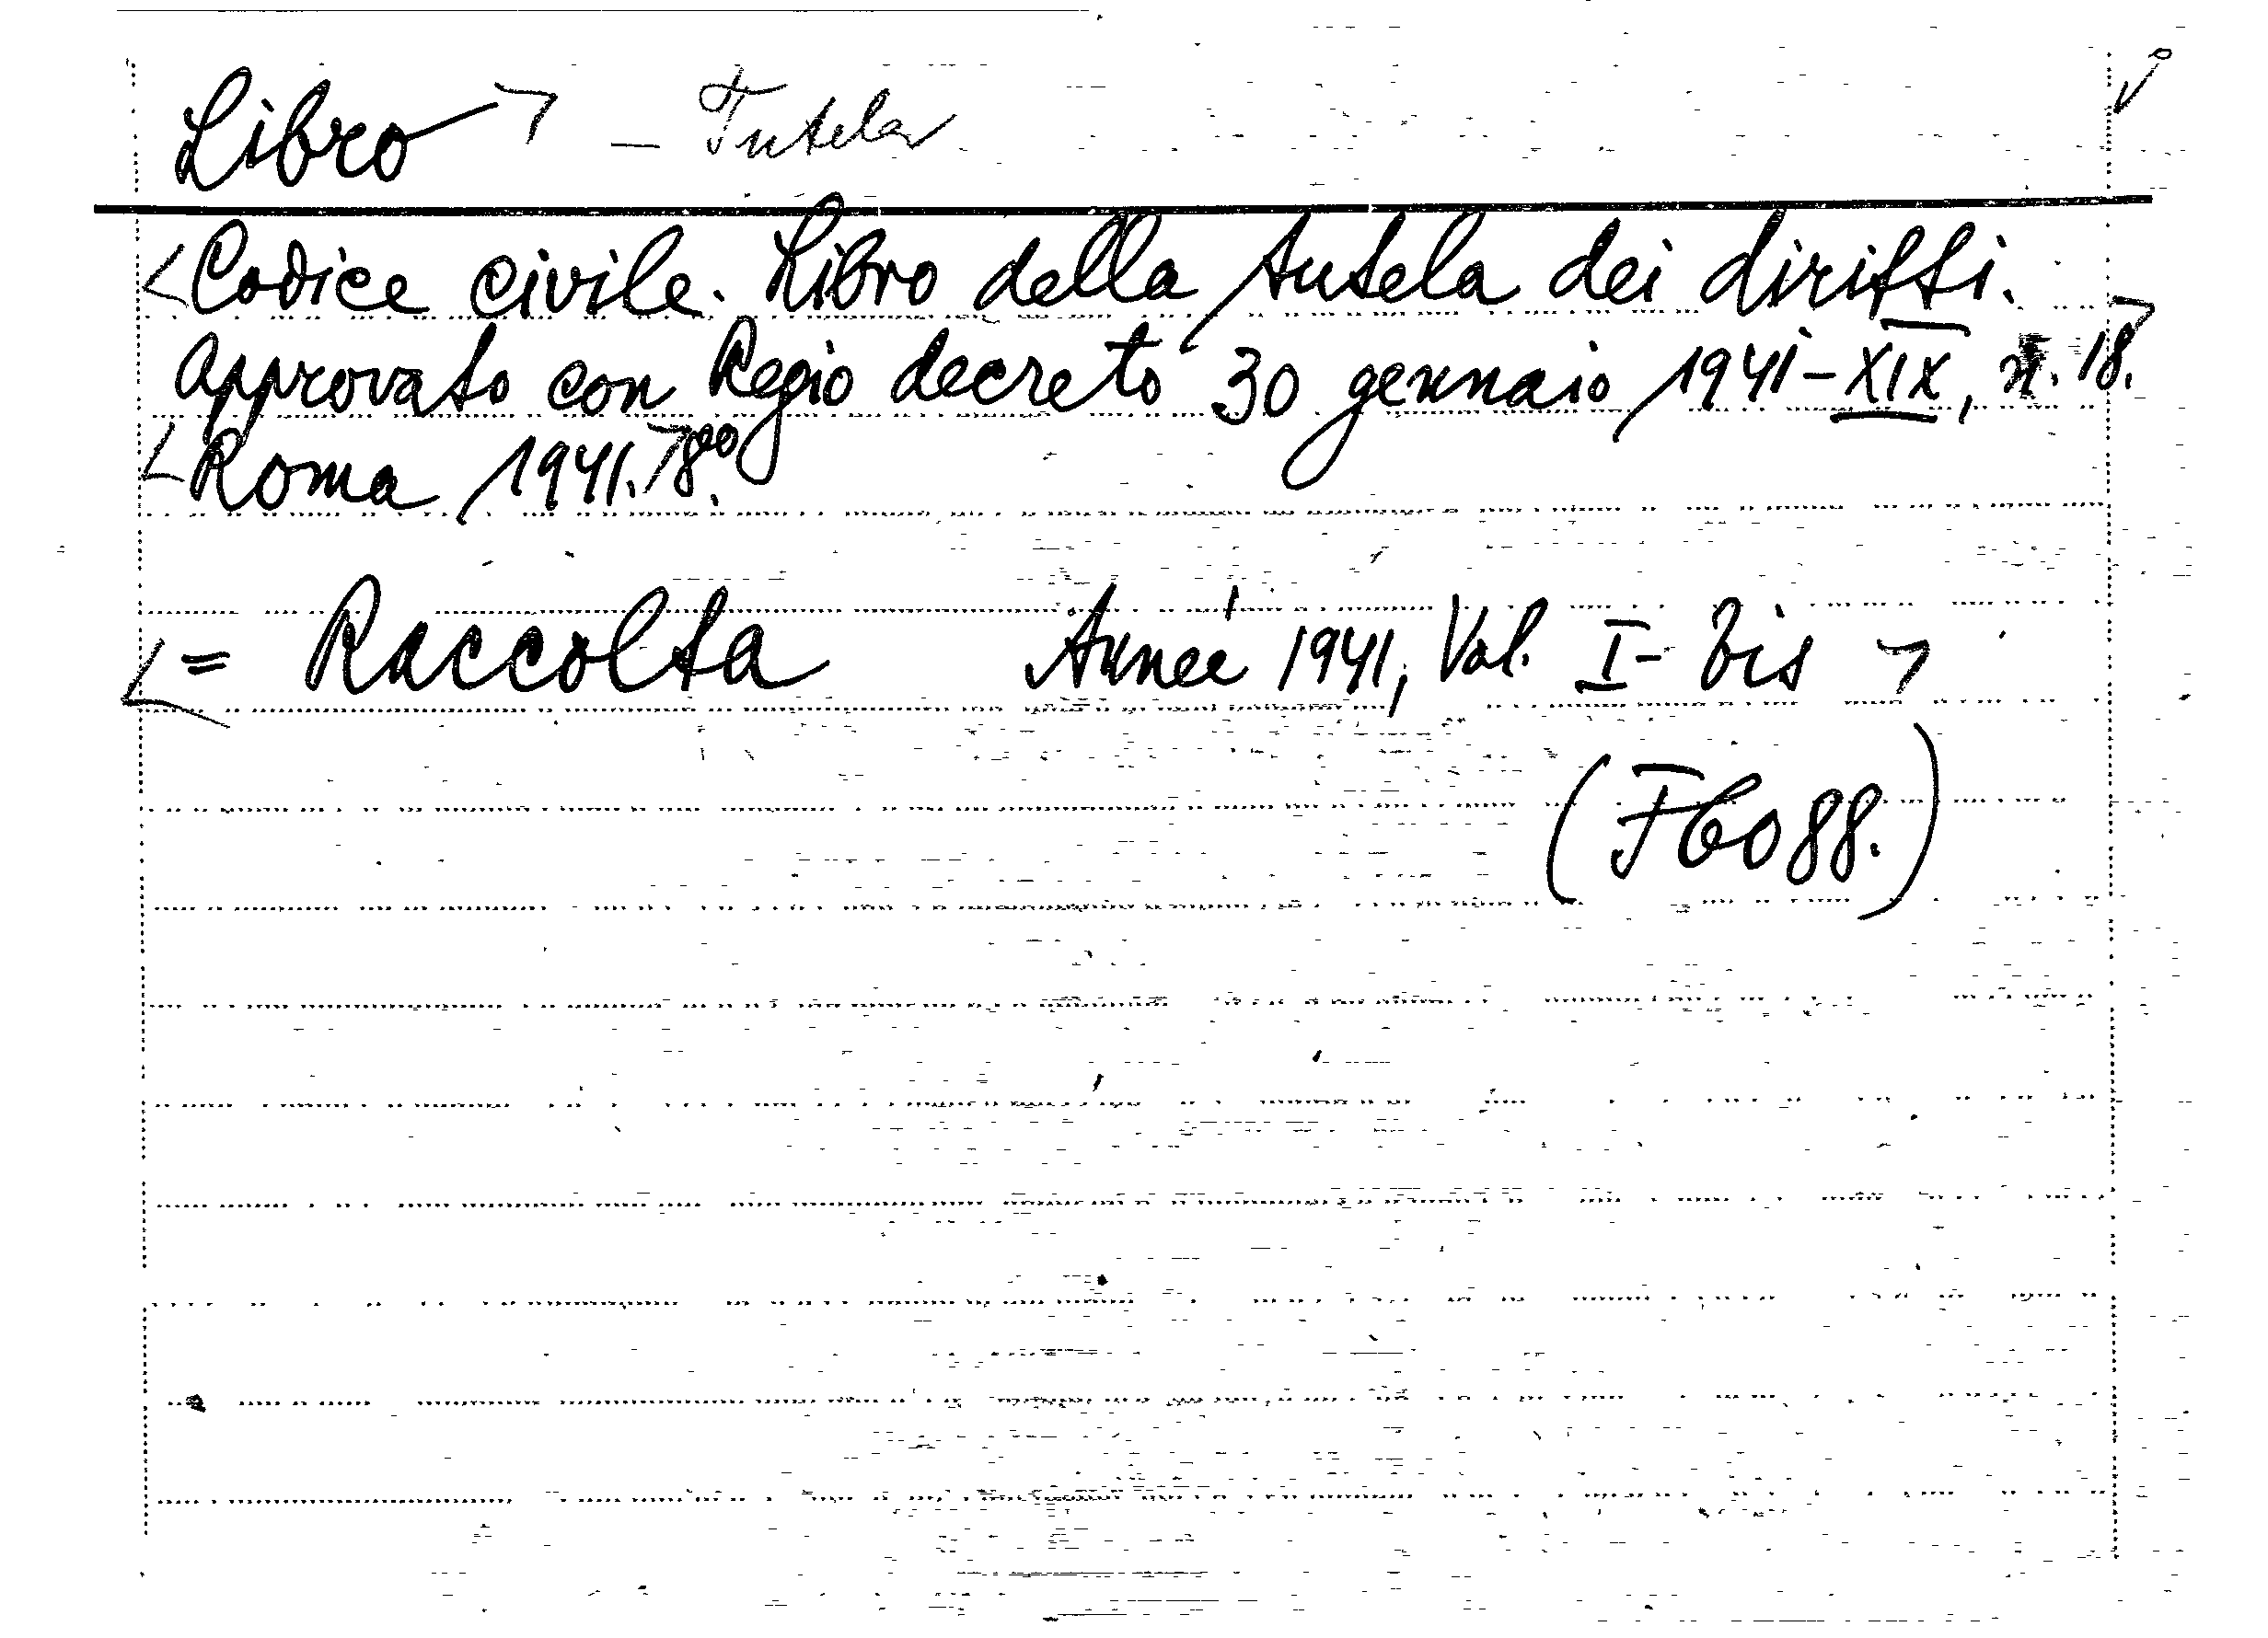 Libro ¬ – Tutela
<Codice civile. Libro della tutela dei diritti.
Approvato con Regio decreto 30 gennaio 1941-XIX, n. 18.¬
<Roma 1941.¬ 8º.
<= Raccolta Année 1941, Vol. I-bis ¬
(F6088.)